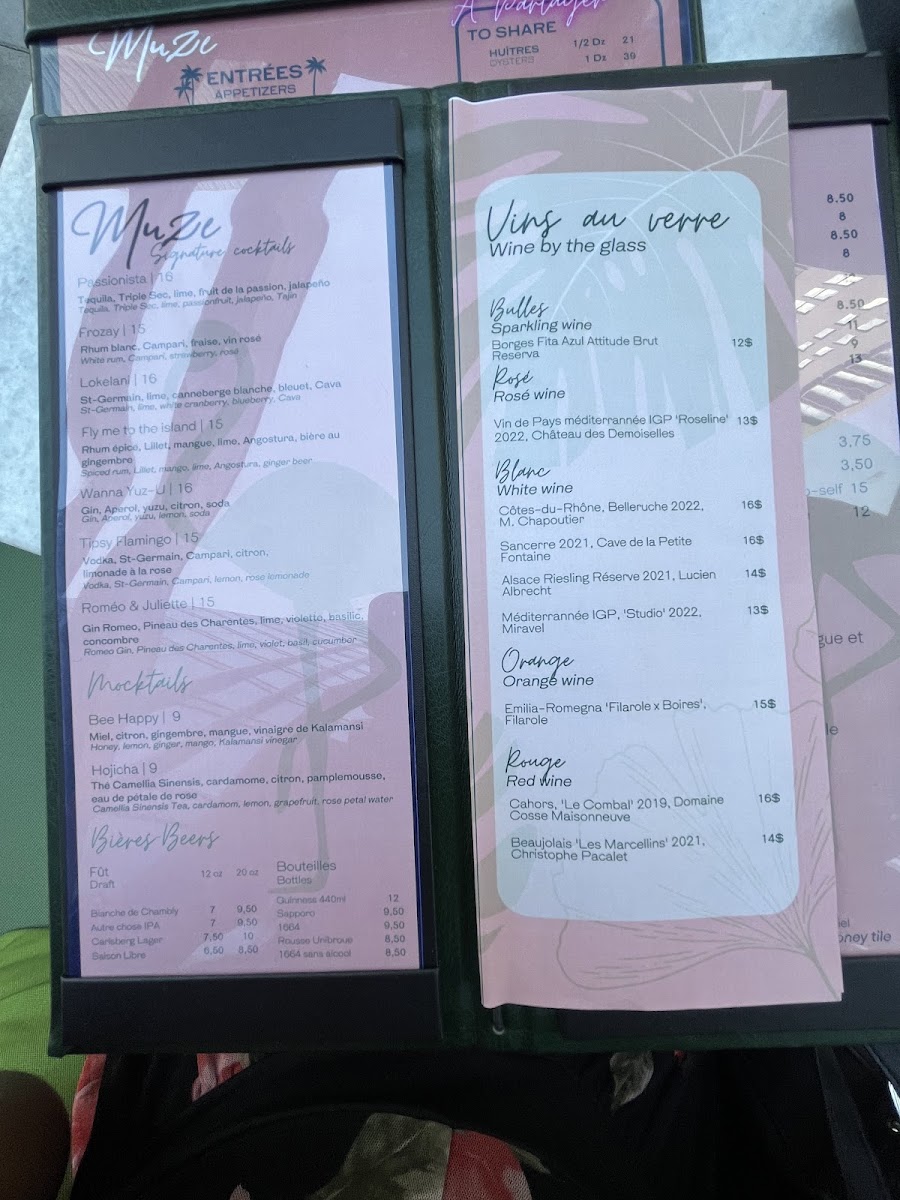 MuZe
ENTRÉES
APPETIZERS
À Partager
TO SHARE
HUÎTRES
OYSTERS
1/2 Dz 21
1 Dz 39
MuZe
Signature cocktails
Passionista | 16
Tequila, Triple Sec, lime, fruit de la passion, jalapeño
Tequila, Triple Sec, lime, passionfruit, jalapeño, Tajin
Frozay | 15
Rhum blanc, Campari, fraise, vin rosé
White rum, Campari, strawberry, rosé
Lokelani | 16
St-Germain, lime, canneberge blanche, bleuet, Cava
St-Germain, lime, white cranberry, blueberry, Cava
Fly me to the island | 15
Rhum épicé, Lillet, mangue, lime, Angostura, bière au
gingembre
Spiced rum, Lillet, mango, lime, Angostura, ginger beer
Wanna Yuz-U | 16
Gin, Aperol, yuzu, citron, soda
Gin, Aperol, yuzu, lemon, soda
Tipsy Flamingo | 15
Vodka, St-Germain, Campari, citron,
limonade à la rose
Vodka, St-Germain, Campari, lemon, rose lemonade
Roméo & Juliette | 15
Gin Romeo, Pineau des Charentes, lime, violette, basilic,
concombre
Romeo Gin, Pineau des Charentes, lime, violet, basil, cucumber
Mocktails
Bee Happy | 9
Miel, citron, gingembre, mangue, vinaigre de Kalamansi
Honey, lemon, ginger, mango, Kalamansi vinegar
Hojicha | 9
Thé Camellia Sinensis, cardamome, citron, pamplemousse,
eau de pétale de rose
Camellia Sinensis Tea, cardamom, lemon, grapefruit, rose petal water
Bières Beers
Fût
Draft
12 oz 20 oz
Blanche de Chambly 7 9,50
Autre chose IPA 7 9,50
Carlsberg Lager 7,50 10
Saison Libre 6,50 8,50
Bouteilles
Bottles
Guinness 440ml 12
Sapporo 9,50
1664 9,50
Rousse Unibroue 8,50
1664 sans alcool 8,50
Vins au verre
Wine by the glass
Bulles
Sparkling wine
Borges Fita Azul Attitude Brut 12$
Reserva
Rosé
Rosé wine
Vin de Pays méditerrannée IGP 'Roseline' 13$
2022, Château des Demoiselles
Blanc
White wine
Côtes-du-Rhône, Belleruche 2022, 16$
M. Chapoutier
Sancerre 2021, Cave de la Petite 16$
Fontaine
Alsace Riesling Réserve 2021, Lucien 14$
Albrecht
Méditerrannée IGP, 'Studio' 2022, 13$
Miraval
Orange
Orange wine
Emilia-Romegna 'Filarole x Boires', 15$
Filarole
Rouge
Red wine
Cahors, 'Le Combal' 2019, Domaine 16$
Cosse Maisonneuve
Beaujolais 'Les Marcellins' 2021, 14$
Christophe Pacalet
8.50
8
8.50
8
8.50
11
9
13
3,75
3,50
-self 15
12
gue et
le
iel
oney tile